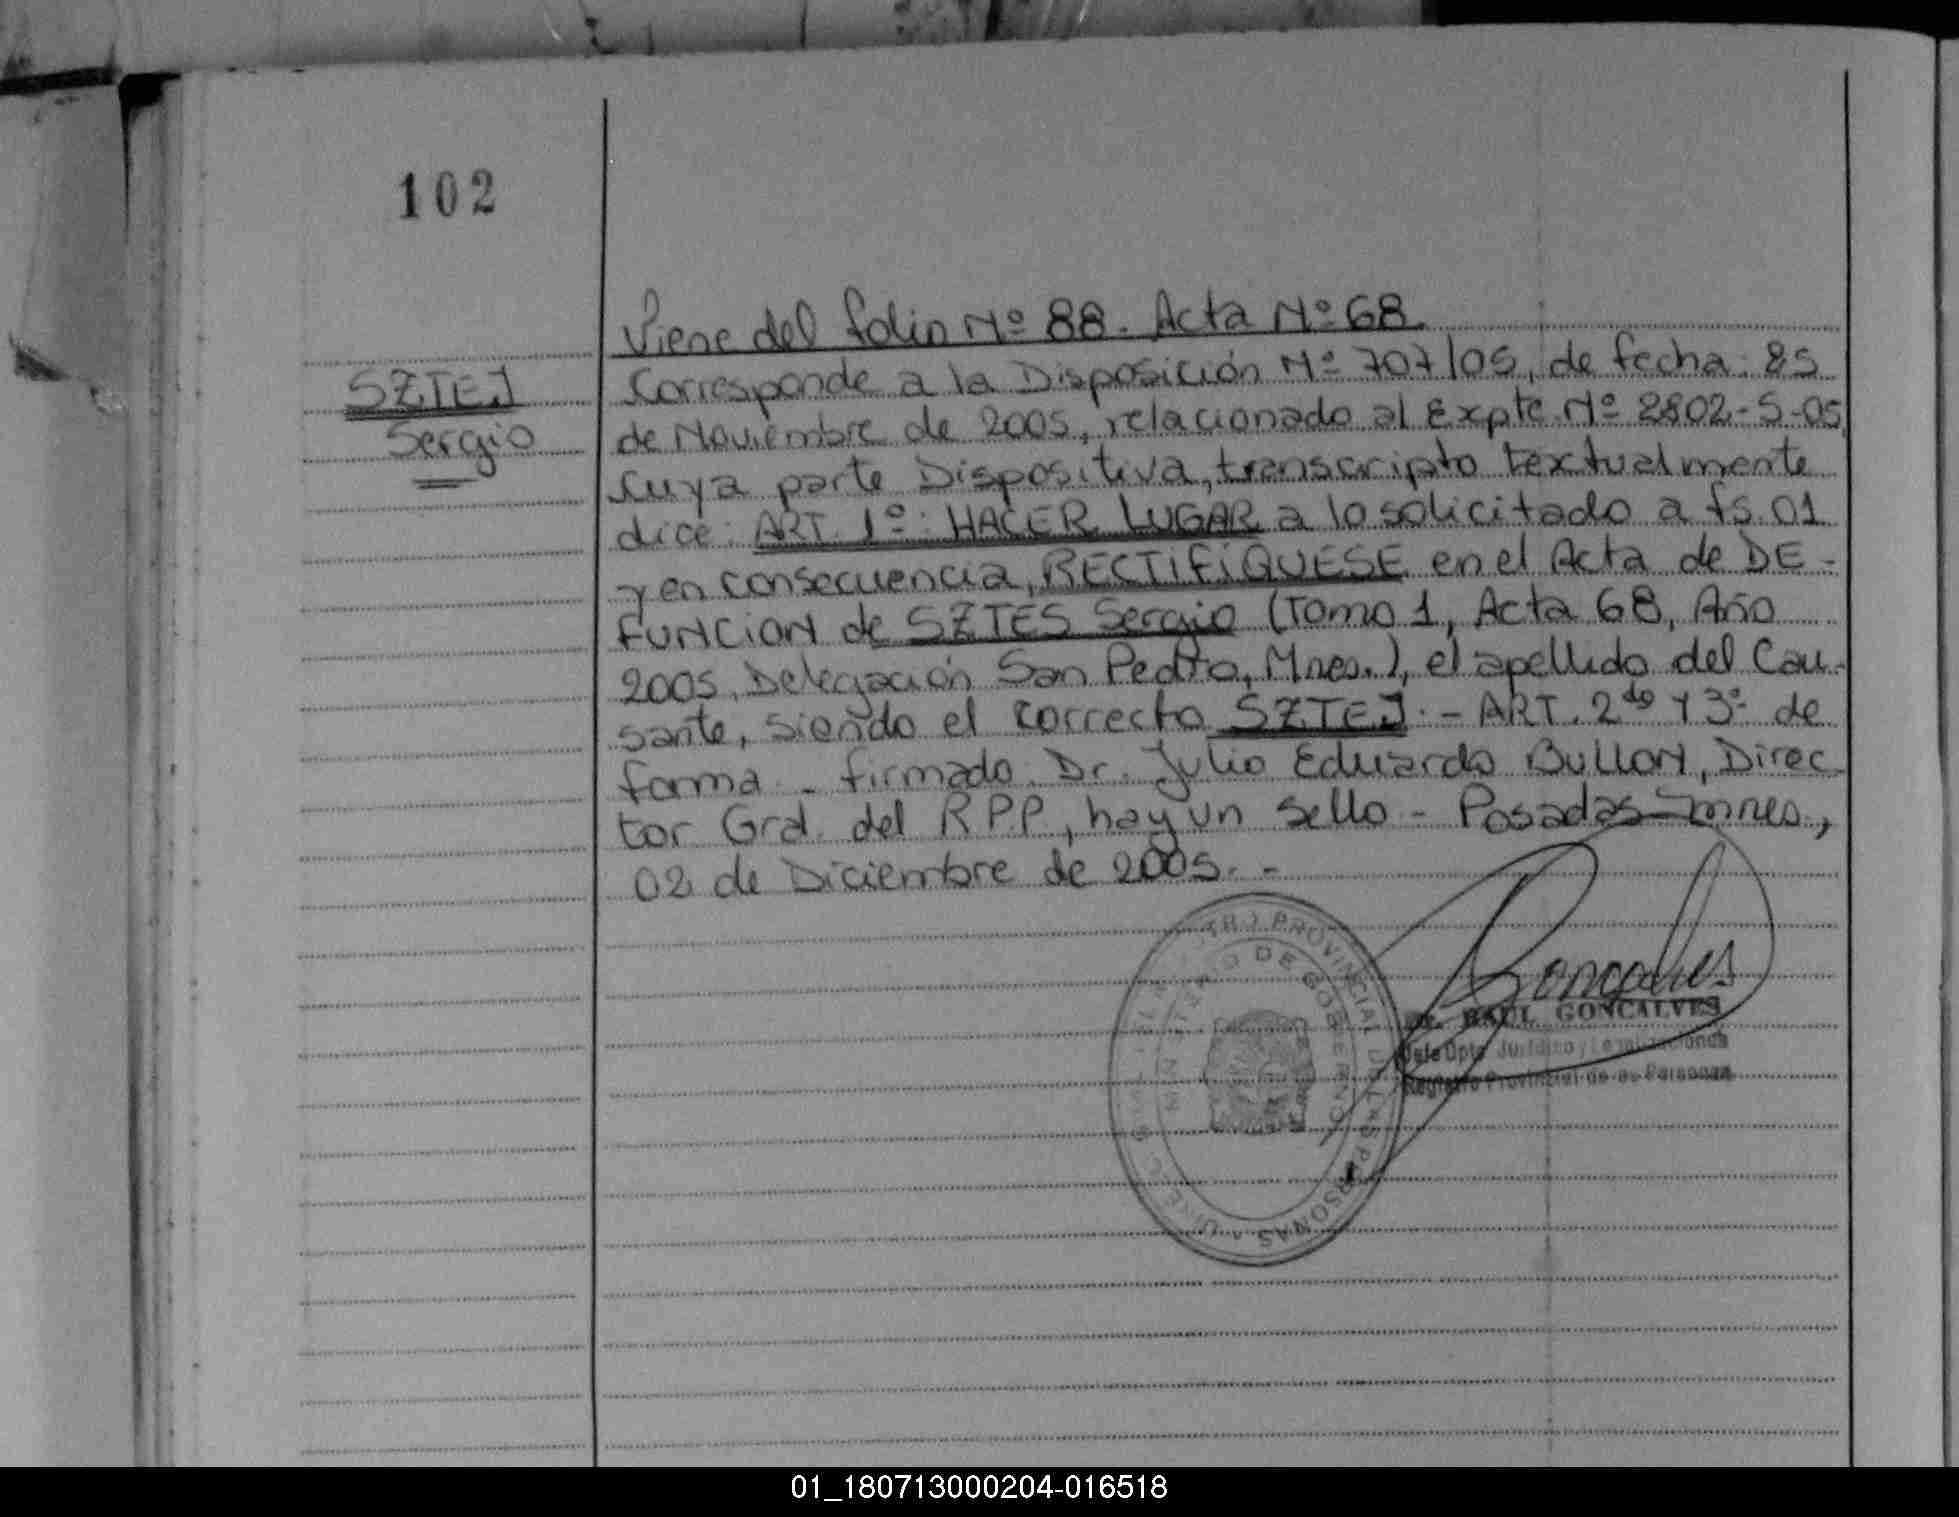 102
Viene del folio Nº 88. Acta Nº 68.
SZTEJ
Sergio
Corresponde a la Disposición Nº 707/05, de fecha: 25
de Noviembre de 2005, relacionado al Expte Nº 2802-S-05
Cuya parte Dispositiva, transcripto textualmente
dice: ART. 1º: HACER LUGAR a lo solicitado a fs. 01
y en consecuencia, RECTIFIQUESE en el Acta de DE-
FUNCION de SZTES Sergio (Tomo 1, Acta 68, Año
2005, Delegación San Pedro, Mnes.), el apellido del Cau-
sante, siendo el correcto SZTEJ. - ART. 2do y 3º de
forma - firmado. Dr. Julio Eduardo BULLON, Direc-
tor Gral. del RPP, hay un sello - Posadas Mnes.,
02 de Diciembre de 2005. -
REGISTRO PROVINCIAL DE LAS PERSONAS
MINISTERIO DE GOBIERNO
Goncalves
Dr. RAUL GONCALVES
Jefe Dpto Jurídico y Legalizaciones
Registro Provincial de las Personas
01_180713000204-016518